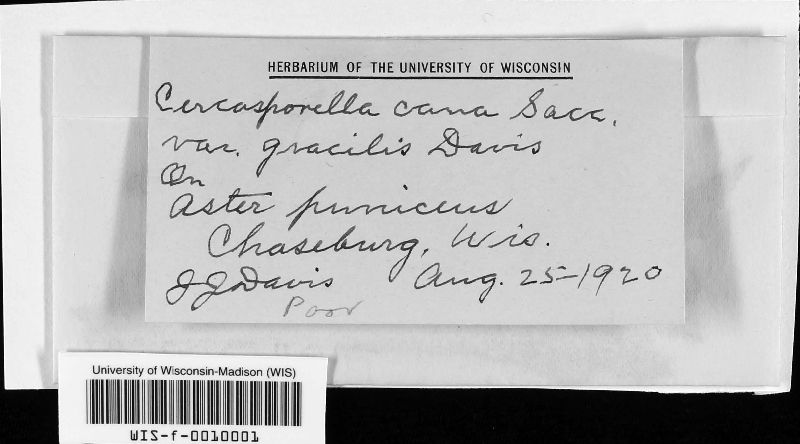 HERBARIUM OF THE UNIVERSITY OF WISCONSIN
Cercosporella cana Sacc.
var. gracilis Davis
On
Aster puniceus
Chaseburg, Wis.
JJDavis Aug. 25-1920
Poor
University of Wisconsin-Madison (WIS)
WIS-f-0010001